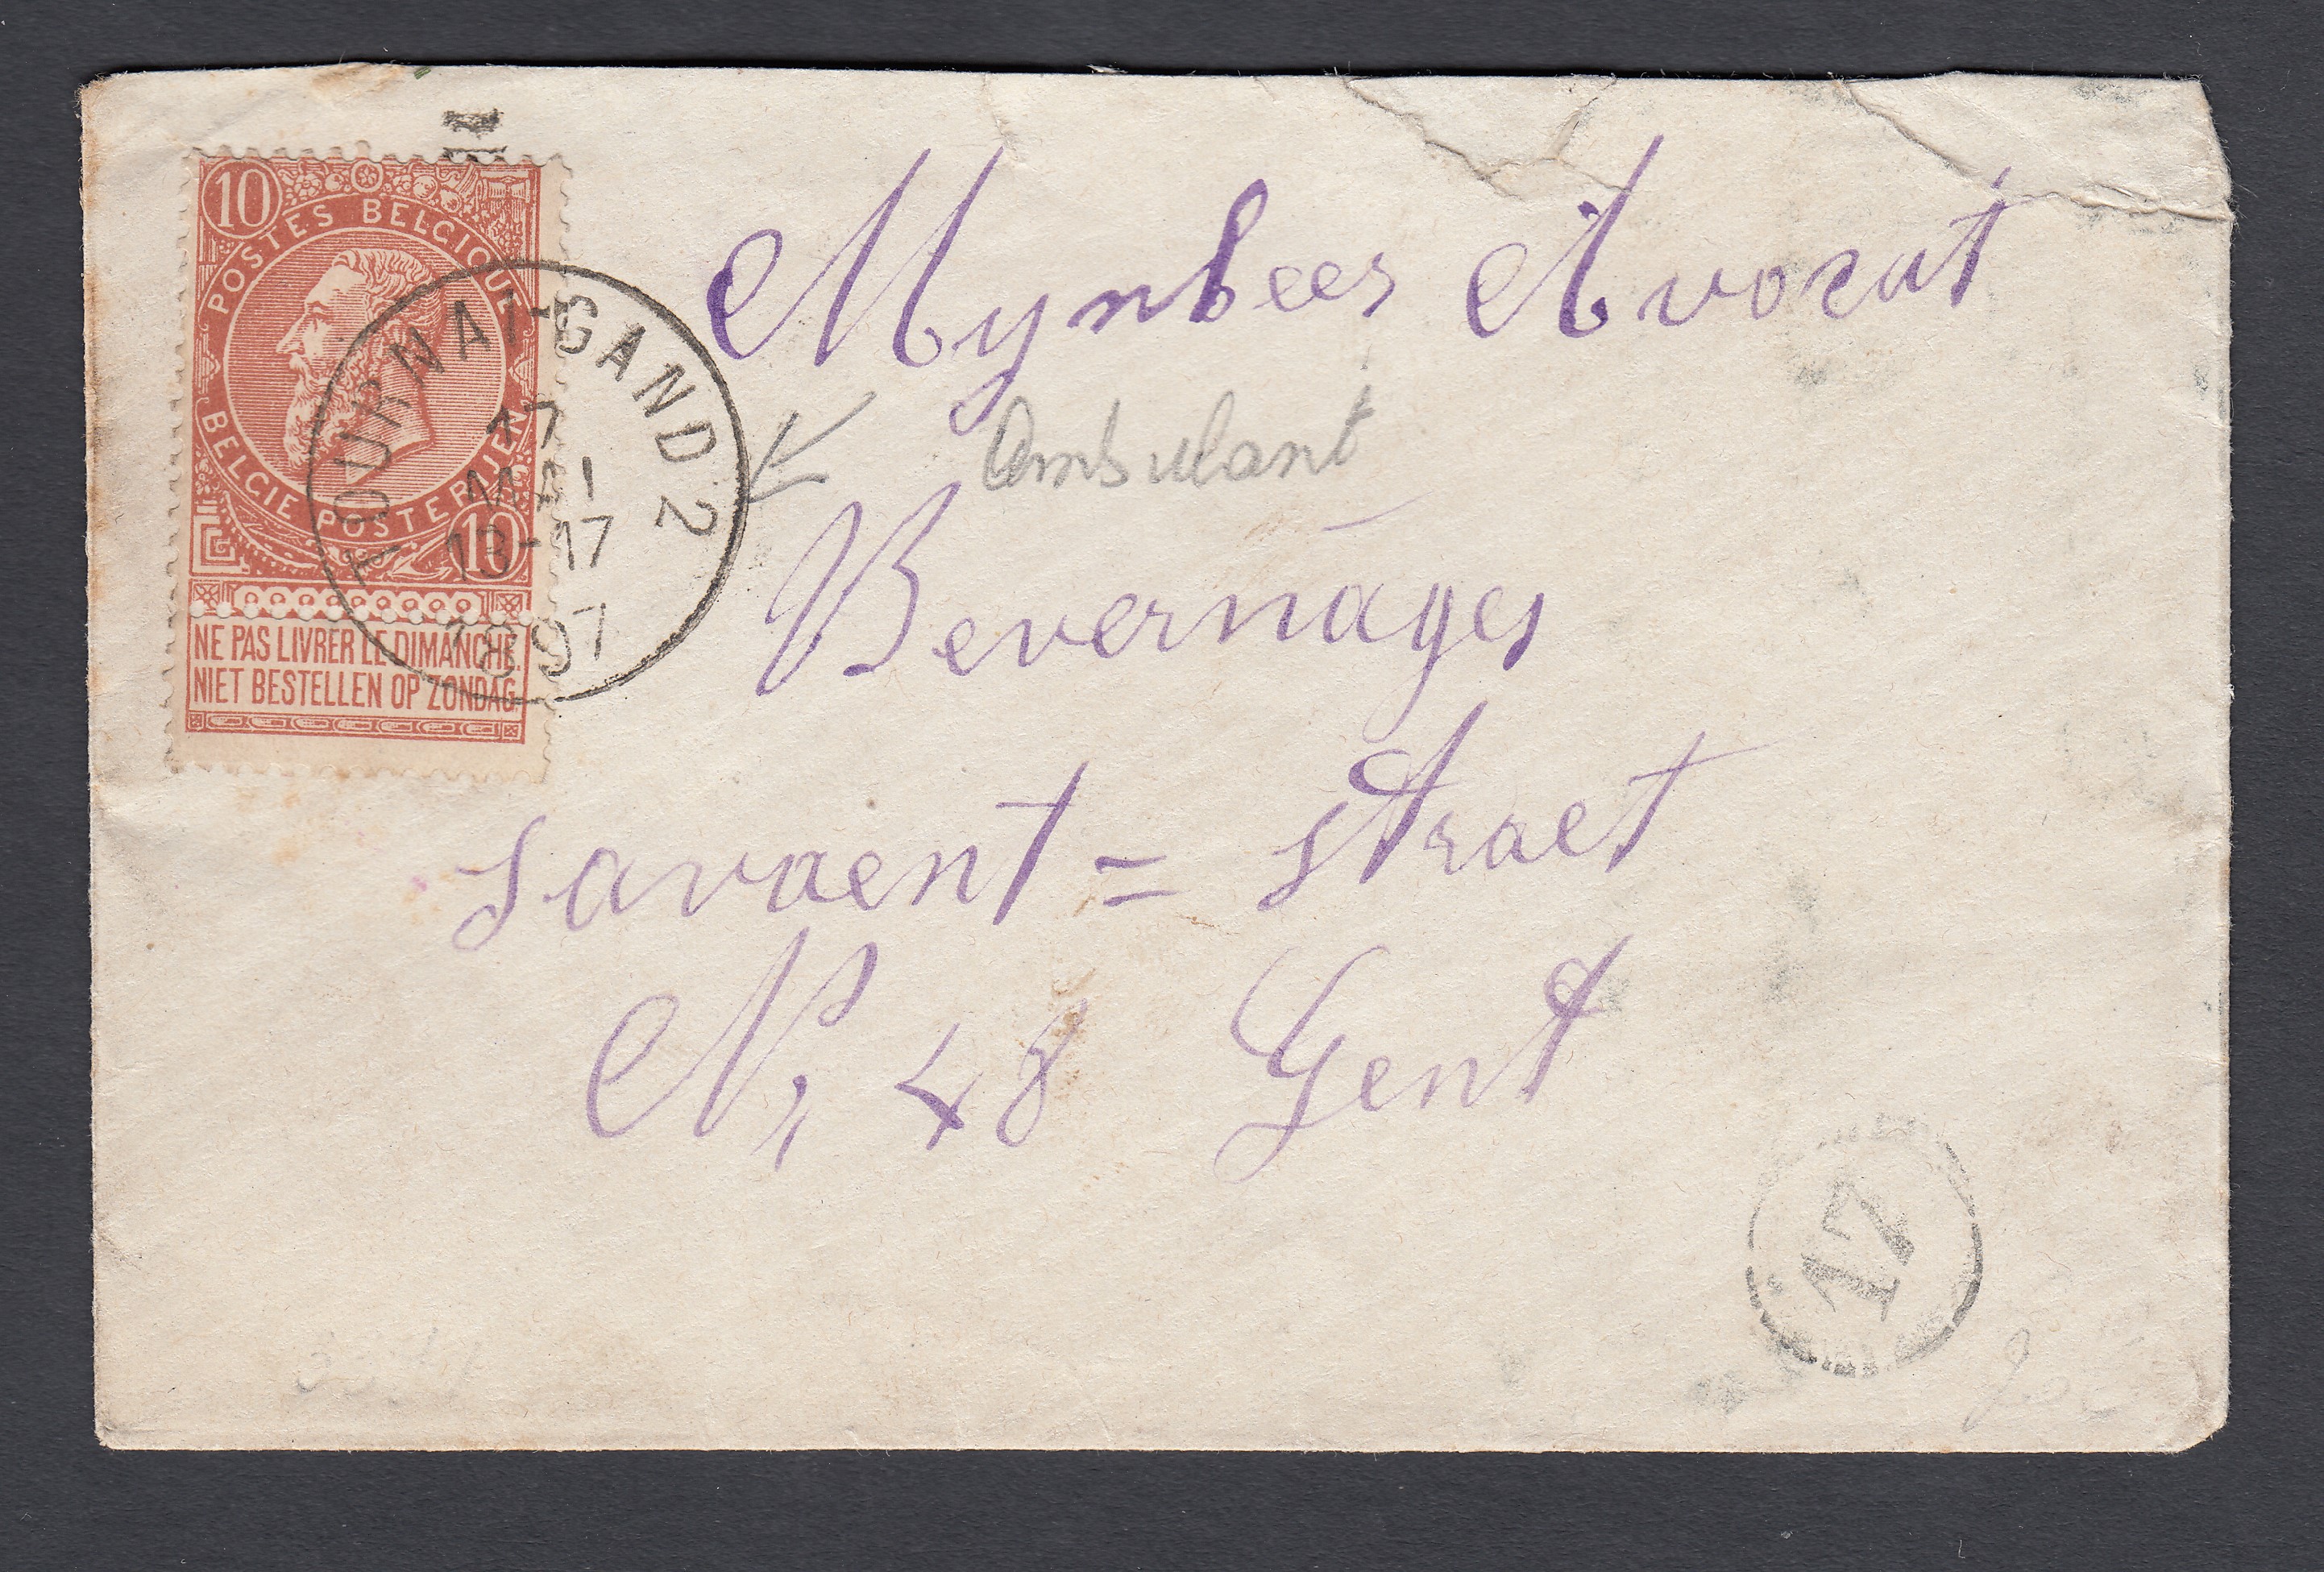 10
POSTES BELGIQUE
BELGIE POSTERIJEN
10
NE PAS LIVRER LE DIMANCHE.
NIET BESTELLEN OP ZONDAG.
TOURNAI-GAND 2
17
MAI
13-17
1897
Mynheer Avocat
Ambulant
Bevernages
Savaent = straet
Nr 48 Gent
17